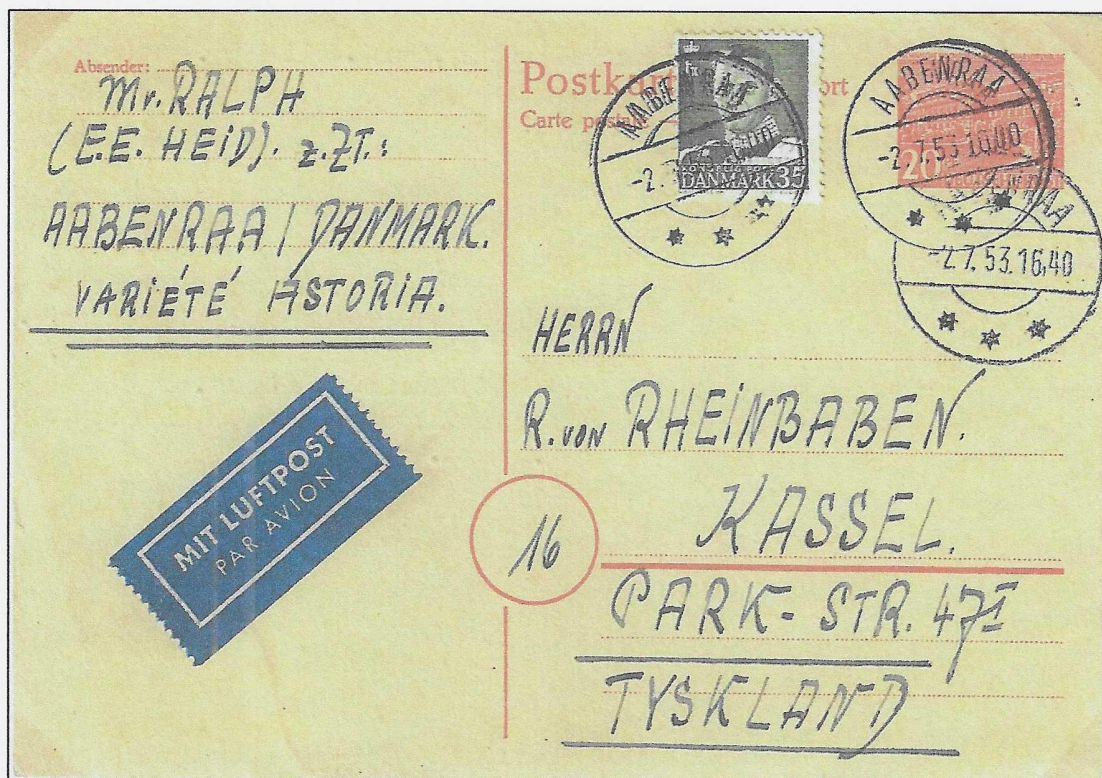 Absender:
Mr. RALPH
(E.E. HEID). z.ZT.:
AABENRAA / DANMARK.
VARIÉTÉ ASTORIA.
MIT LUFTPOST
PAR AVION
Carte
DANMARK 35
AABENRAA
AABENRAA
-2.7.53.16,40
20
HERRN
R. von RHEINBABEN.
16
KASSEL.
PARK- STR. 47 I
TYSKLAND